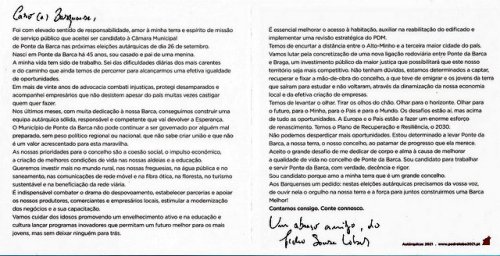 Caro (a) Barquense,
Foi com elevado sentido de responsabilidade, amor à minha terra e espírito de missão
de serviço público que aceitei ser candidato à Câmara Municipal
de Ponte da Barca nas próximas eleições autárquicas de dia 26 de setembro.
Nasci em Ponte da Barca há 45 anos, sou casado e pai de uma menina.
A minha vida tem sido de trabalho. Sei das dificuldades diárias dos mais carentes
e do caminho que ainda temos de percorrer para alcançarmos uma efetiva igualdade
de oportunidades.
Em mais de vinte anos de advocacia combati injustiças, protegi desamparados e
acompanhei empresários que não desistem apesar do país muitas vezes castigar
quem quer fazer.
Nos últimos meses, com muita dedicação à nossa Barca, conseguimos construir uma
equipa autárquica sólida, responsável e competente que vai devolver a Esperança.
O Município de Ponte da Barca não pode continuar a ser governado por alguém mal
preparado, sem peso político regional ou nacional, que não sabe criar união e que não
é um valor acrescentado para esta maravilha.
As nossas prioridades para o concelho são a coesão social, o impulso económico,
a criação de melhores condições de vida nas nossas aldeias e a educação.
Queremos investir mais no mundo rural, nas nossas freguesias, na água pública e no
saneamento, nas comunicações de rede móvel e na fibra ótica, na floresta, no turismo
sustentável e na beneficiação da rede viária.
É indispensável combater o drama do despovoamento, estabelecer parcerias e apoiar
os nossos produtores, comerciantes e empresários locais, estimular a modernização
dos negócios e a sua capacitação.
Vamos cuidar dos idosos promovendo um envelhecimento ativo e na educação e
cultura lançar programas inovadores que permitam um futuro melhor para os mais
jovens, mas sem deixar ninguém para trás.
É essencial melhorar o acesso à habitação, auxiliar na reabilitação do edificado e
implementar uma revisão estratégica do PDM.
Temos de encurtar a distância entre o Alto-Minho e a terceira maior cidade do país.
Vamos lutar pela concretização de uma nova ligação rodoviária entre Ponte da Barca
e Braga, um investimento público da maior justiça que possibilitará que este nosso
território seja mais competitivo. Não tenham dúvidas, estamos determinados a captar,
recuperar e fixar a mão-de-obra do concelho, a que teve de emigrar e os jovens da terra
que saíram para estudar e não voltaram, através da dinamização na nossa economia
local e da efetiva criação de empresas.
Temos de levantar o olhar. Tirar os olhos do chão. Olhar para o horizonte. Olhar para
o futuro, para o Minho, para o País e para o Mundo. Os desafios estão aí, mas acima
de tudo as oportunidades. A Europa e o País estão a fazer um enorme esforço
de renascimento. Temos o Plano de Recuperação e Resiliência, o 2030.
Não podemos desperdiçar mais oportunidades. Estou determinado a levar Ponte da
Barca, a nossa terra, o nosso concelho, ao patamar de progresso que ela merece.
Aceito o grande desafio de me dedicar de corpo e alma à causa de melhorar
a qualidade de vida no concelho de Ponte da Barca. Sou candidato para trabalhar
e servir Ponte da Barca, com verdade, decência e rigor.
Sou candidato porque amo a minha terra que é um grande concelho.
Aos Barquenses um pedido: nestas eleições autárquicas precisamos da vossa voz,
de ouvir nela o orgulho na nossa terra e a força para juntos construirmos uma Barca
Melhor!
Contamos consigo. Conte connosco.
Um abraço amigo, do
Pedro Sousa Lobo
Autárquicas 2021 . www.pedrolobo2021.pt